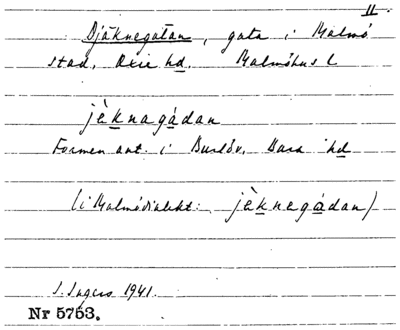 II.
Djäknegatan, gata i Malmö
stad, Oxie hd. Malmöhus l
jèknagádan
Formen ant. i Burlöv, Bara hd
(i Malmödialekt: jèknegadan)
I. Ingers 1941.
Nr 5753.